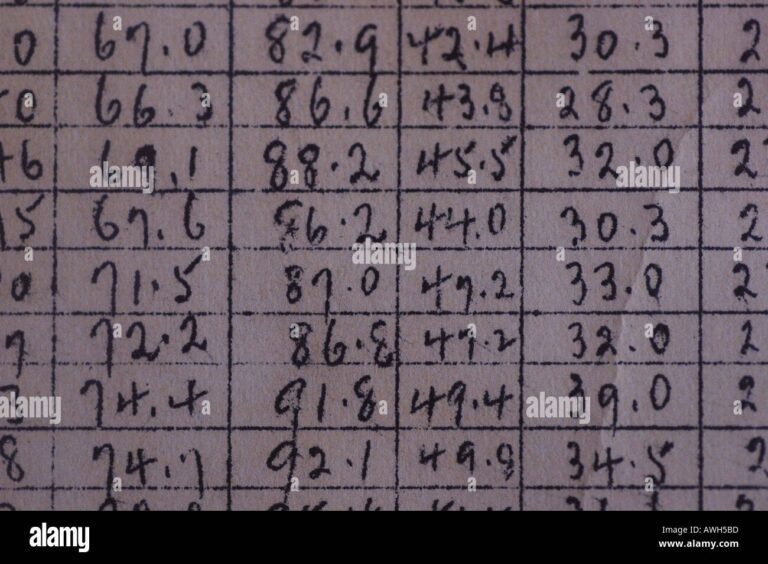 0 67.0 82.9 42.4 30.3 2
0 66.3 86.6 43.8 28.3 2
46 88.2 45.5 32.0 2
15 67.6 86.2 44.0 30.3 2
0 71.5 87.0 47.2 33.0 2
7 72.2 86.8 47.2 32.0 2
3 74.4 91.8 49.4 39.0 2
8 74.7 92.1 49.9 34.5 2
alamy
Image ID: AWH5BD
www.alamy.com